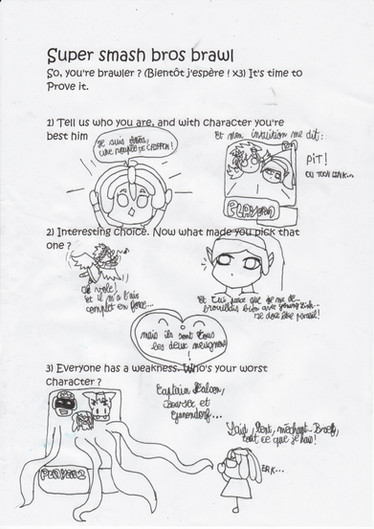 Super smash bros brawl
So, you're brawler ? (Bientôt j'espère ! x3) It's time to
Prove it.
1) Tell us who you are, and with character you're
best him
Je suis
une
Et mon intuition me dit:
PIT!
ou Toon Link...
2) Interesting choice. Now what made you pick that
one ?
Il vole!
Et il m'a l'air
complet en
Et lui parce que je me
bien avec young link
je dois être pareil!
mais ils sont tous
les deux mignons
3) Everyone has a weakness. Who's your worst
character ?
Captain Falcon,
Bowser et
Ganondorf...
Laid, lent, méchant... Bref,
tout ce que je hais!
PLAYER 2
ERK...